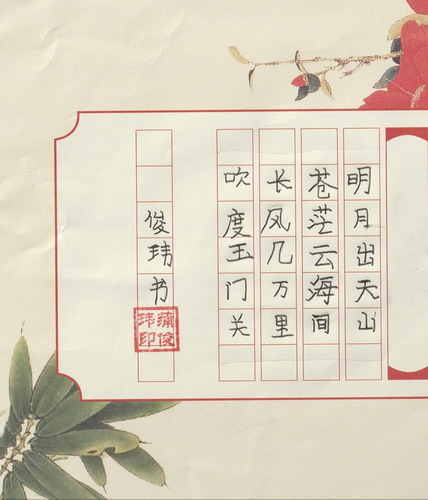 明月出天山
苍茫云海间
长风几万里
吹度玉门关
俊玮书
蒲俊玮印